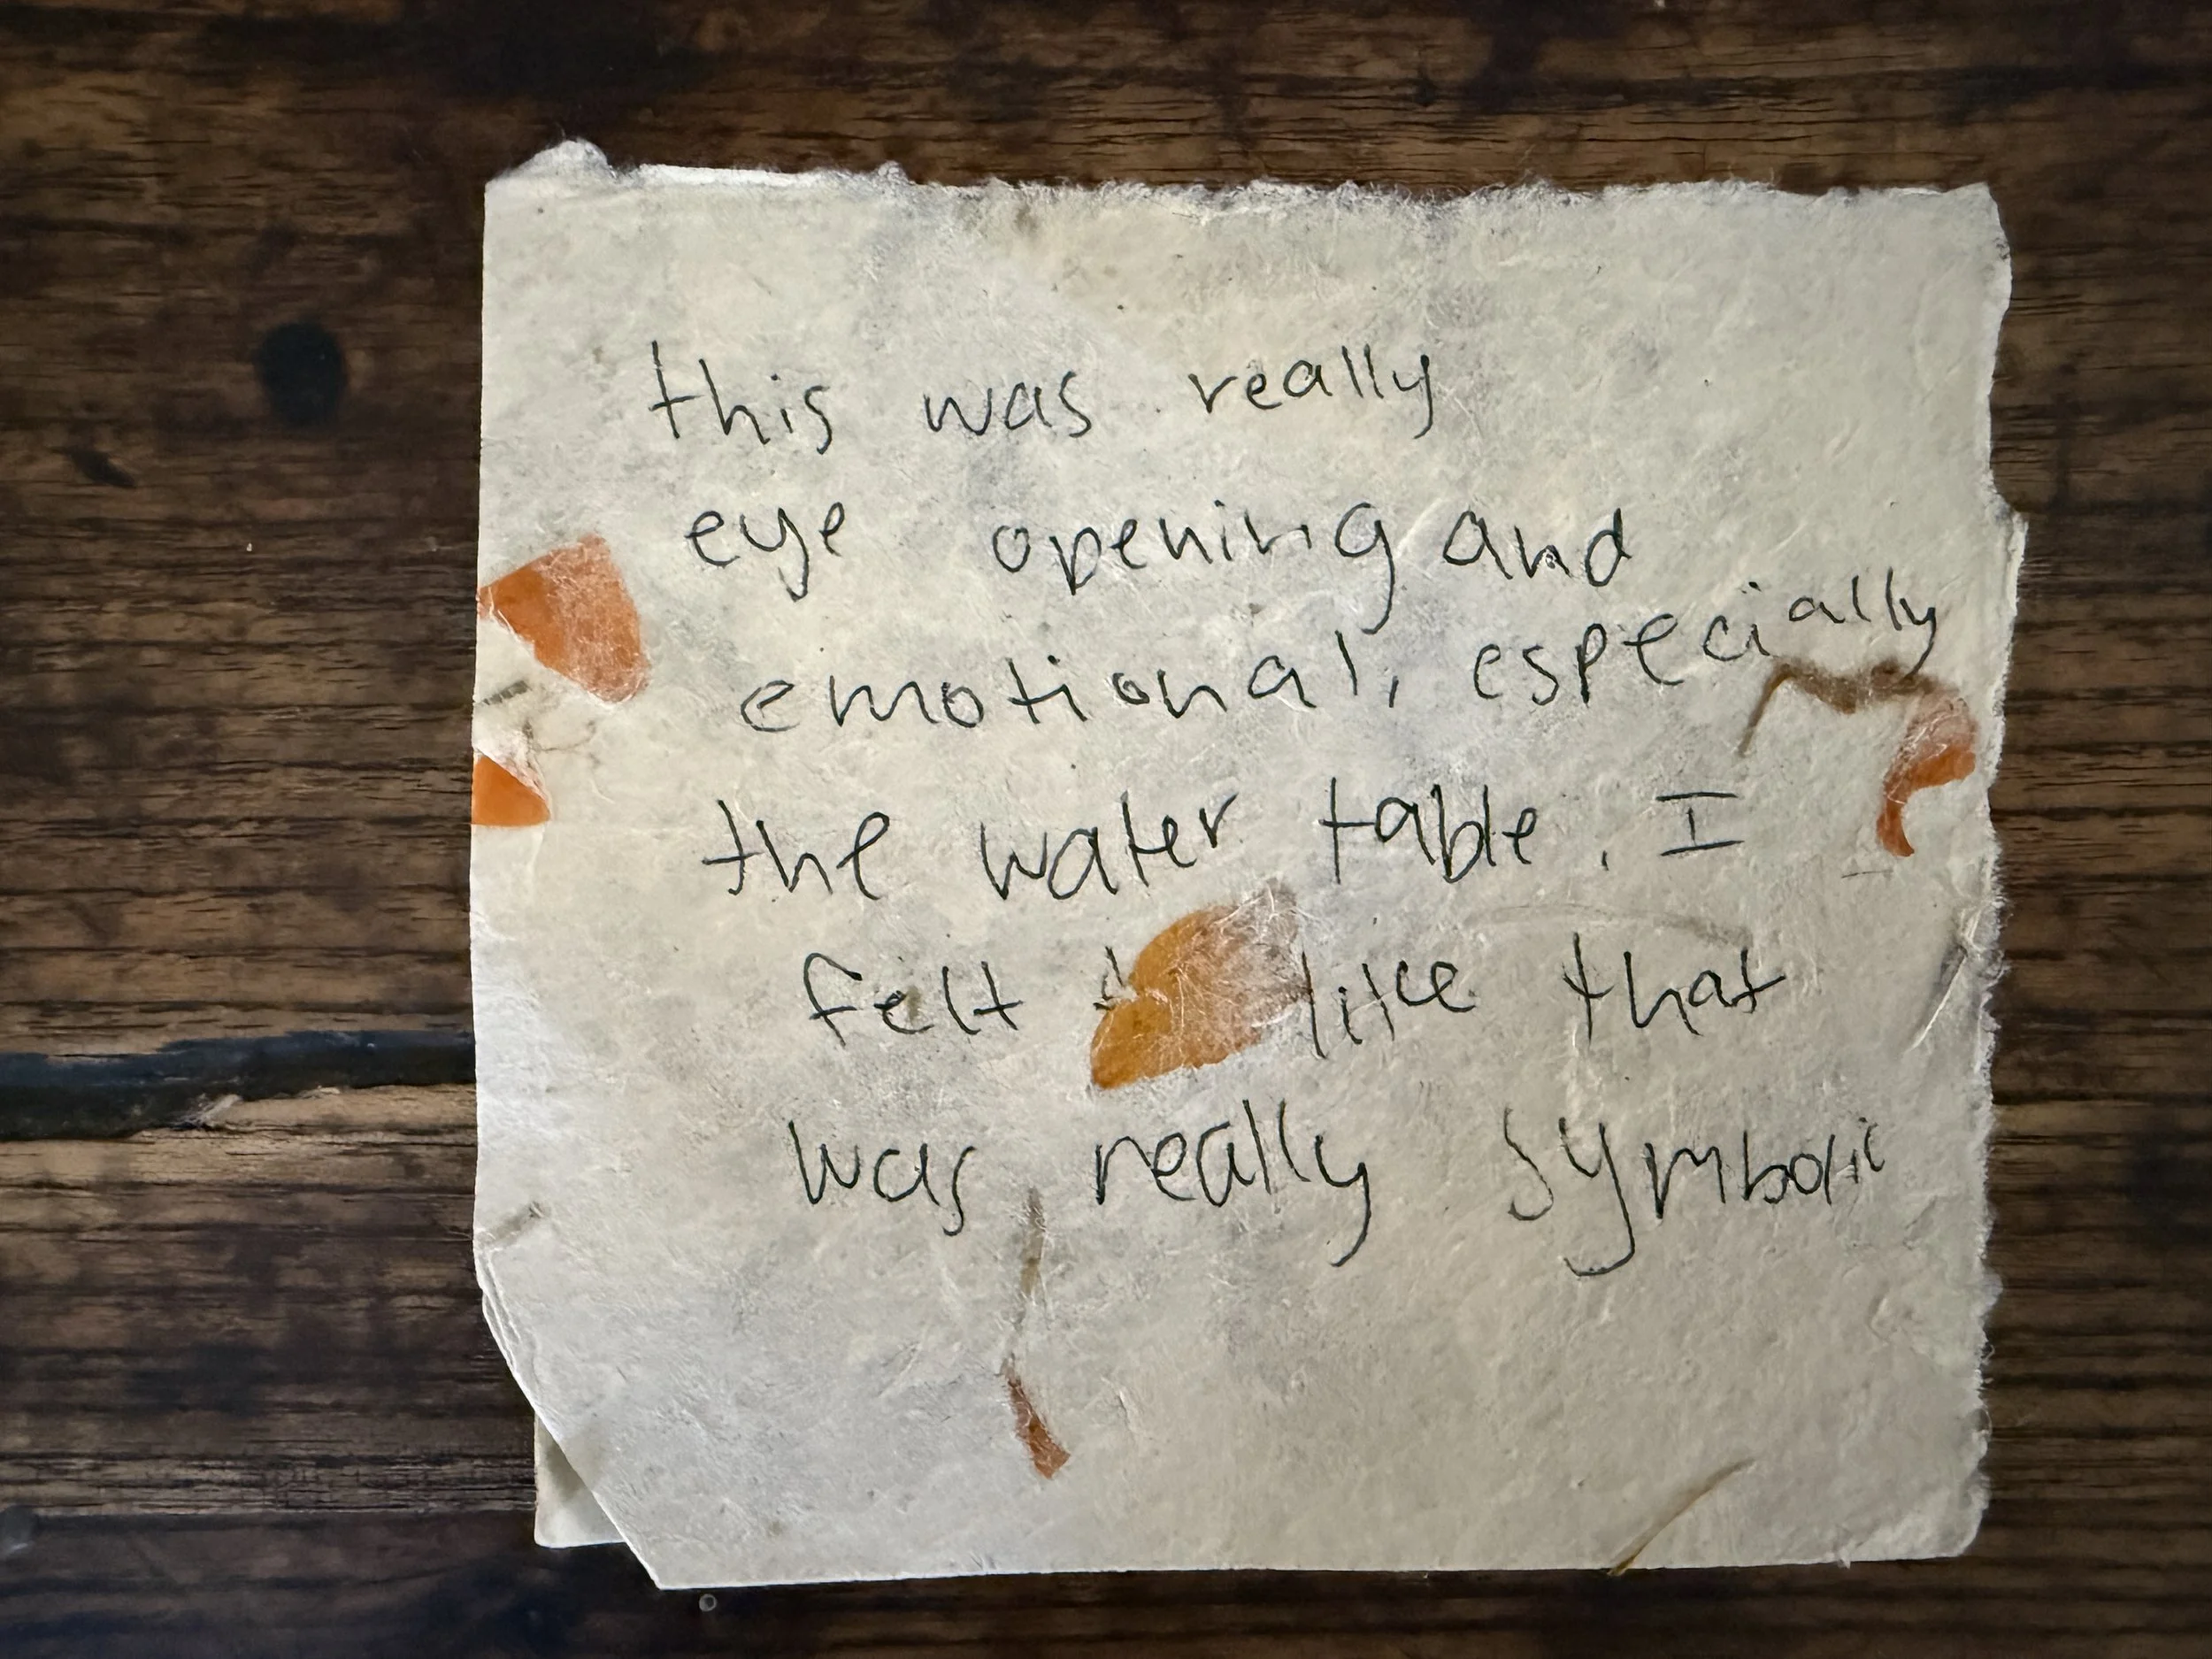 this was really
eye opening and
emotional, especially
the water table. I
felt like that
was really symbolic